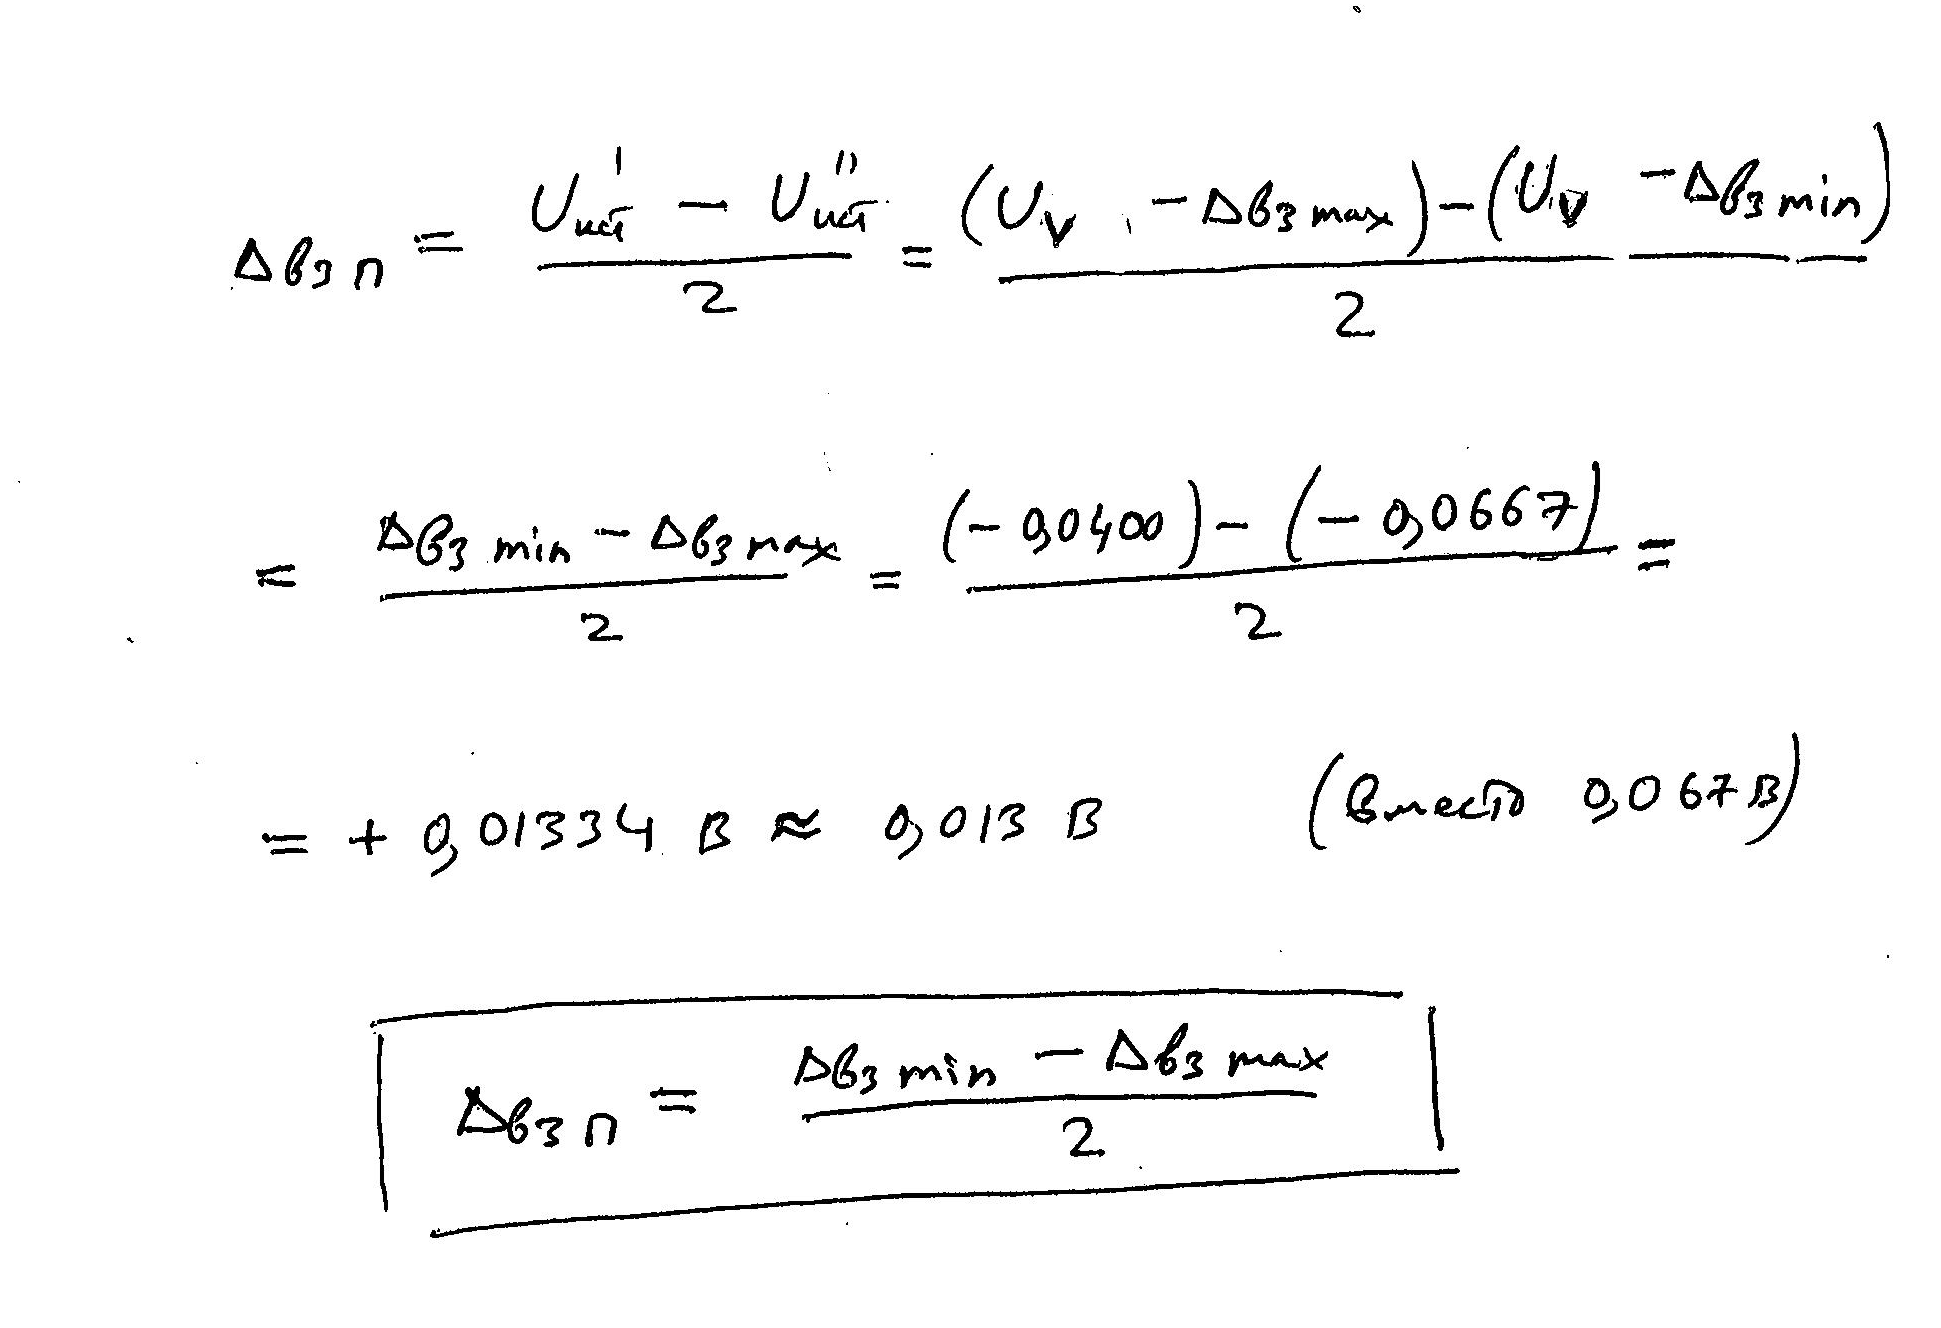 Δвз п = (U'ист − U''ист) / 2 = ((Uv − Δвз max) − (Uv − Δвз min)) / 2
= (Δвз min − Δвз max) / 2 = ((− 0,0400) − (− 0,0667)) / 2 =
= + 0,01334 В ≈ 0,013 В (вместо 0,067 В)
Δвз п = (Δвз min − Δвз max) / 2